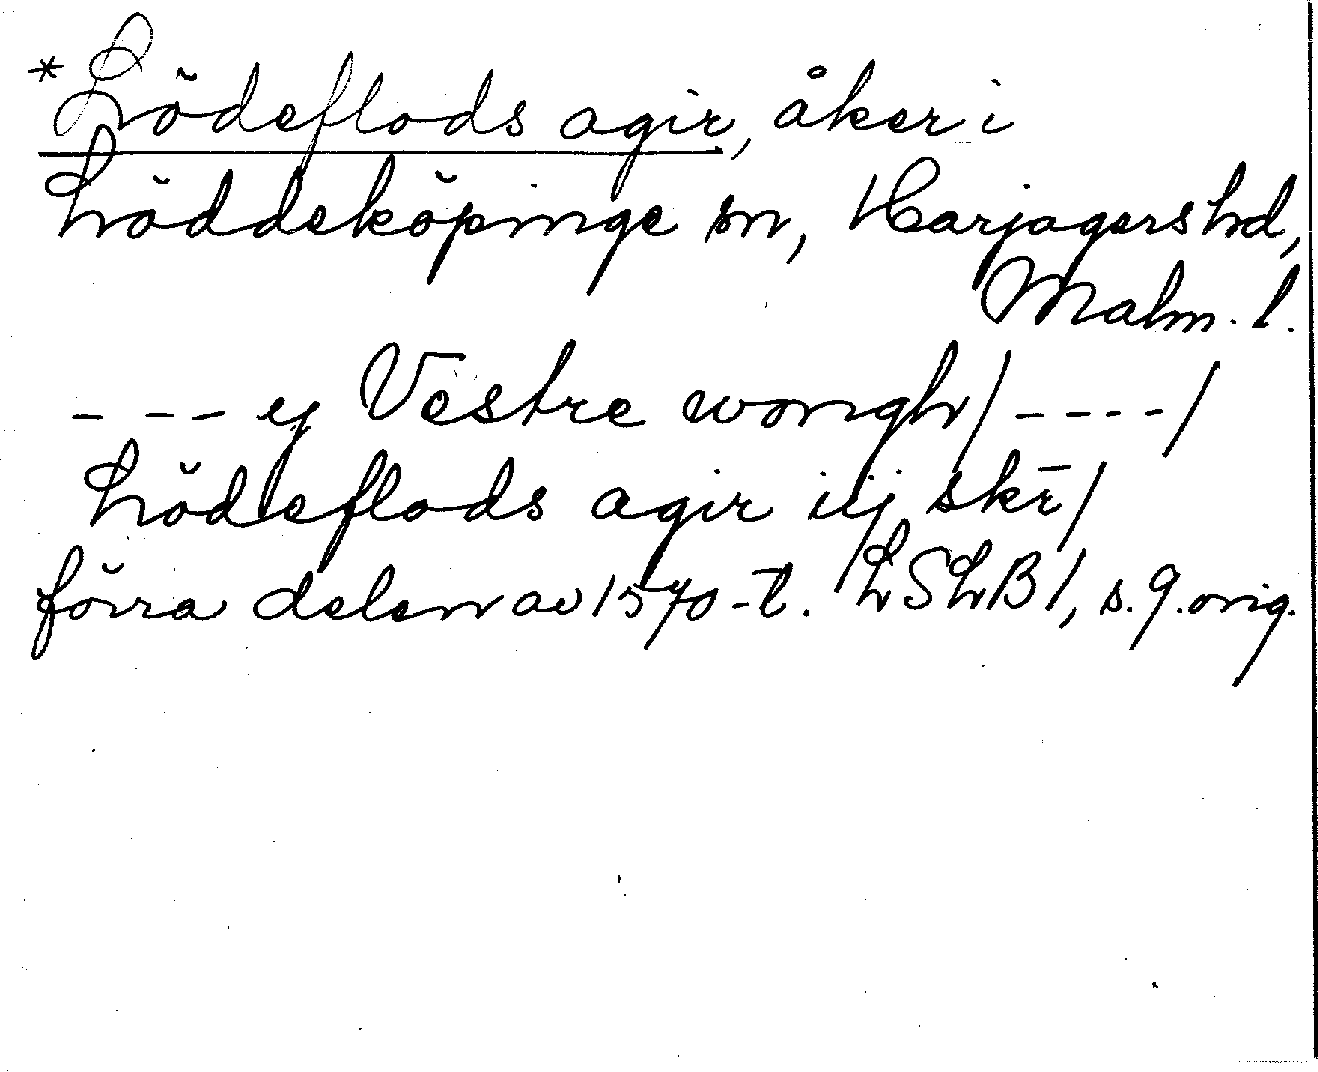 *Lödeflods agir, åker i
Löddeköpinge sn, Harjagers hd,
Malm. l.
- - - ej Vestre wongh/ - - - - /
Lödeflods agir iij skr̄/
förra delen av 1570-t. LSLB 1, s. 9. orig.